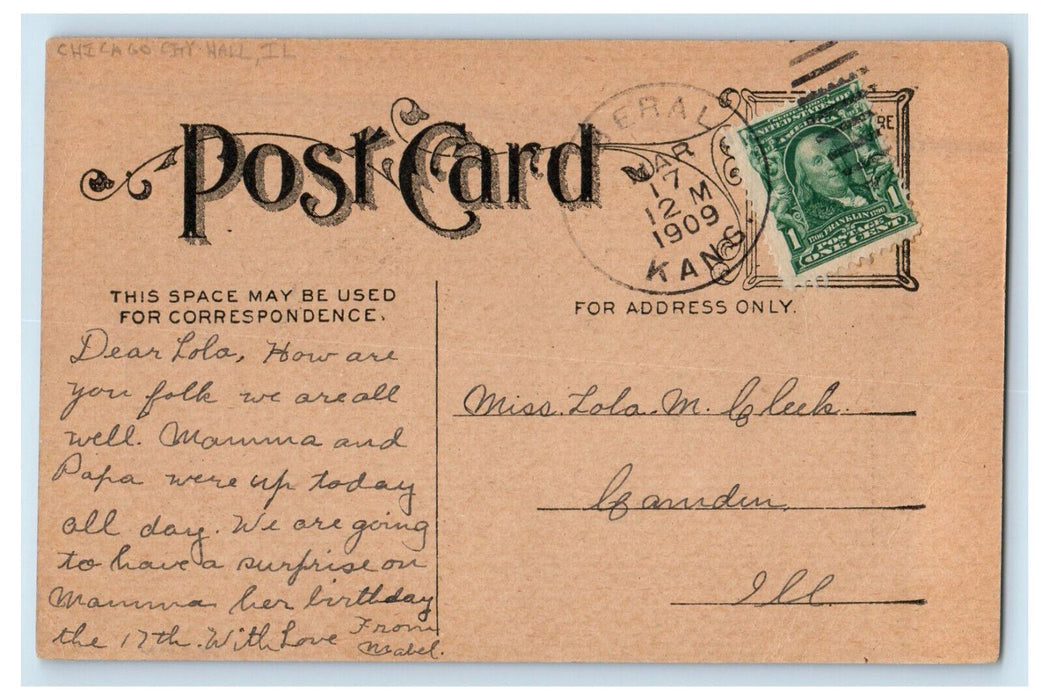 CHICAGO CITY HALL, IL
Post Card
MAR
17
12 M
1909
KANS.
UNITED STATES OF
AMERICA
1706 FRANKLIN 1790
1 1
POSTAGE
ONE CENT
THIS SPACE MAY BE USED
FOR CORRESPONDENCE.
FOR ADDRESS ONLY.
Dear Lola, How are
you folk we are all
well. Mamma and
Papa were up today
all day. We are going
to have a surprise on
Mamma her birthday
the 17th. With Love From
Mabel.
Miss. Lola. M. Cleek.
Camden,
Ill.